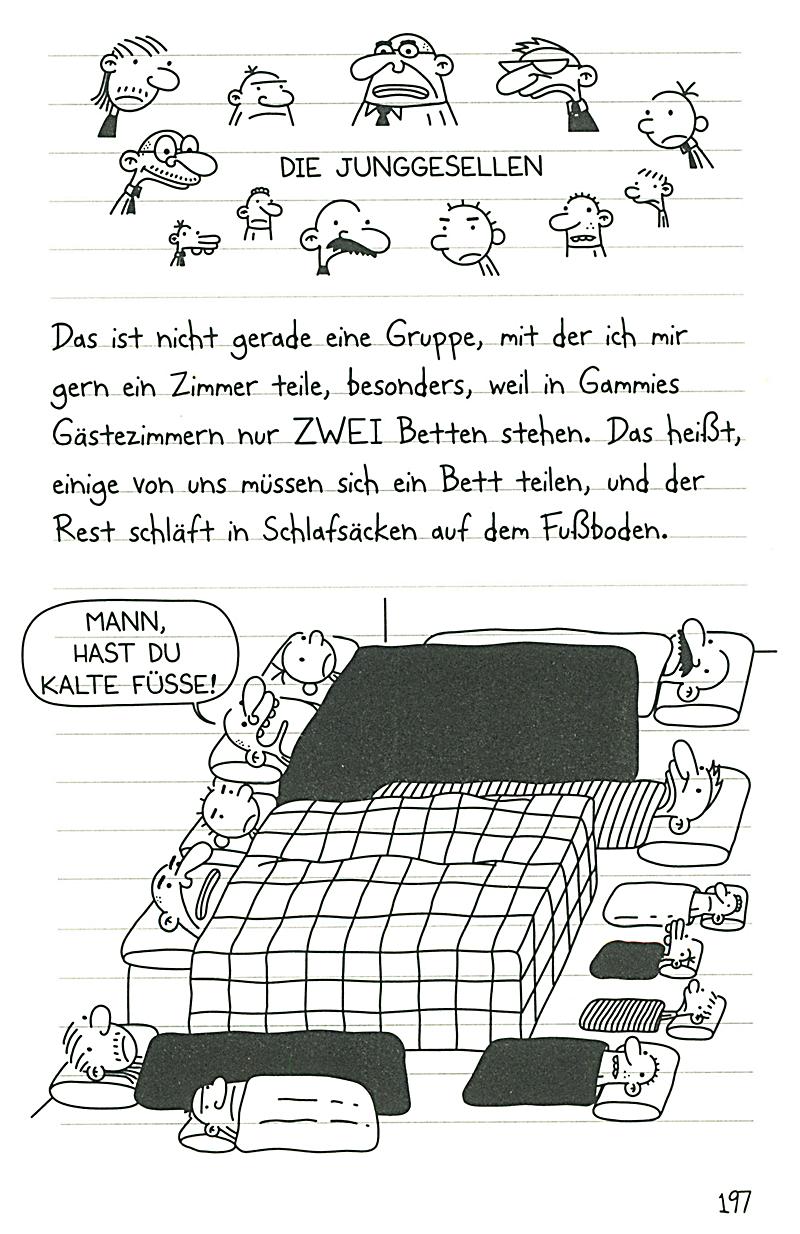 DIE JUNGGESELLEN
Das ist nicht gerade eine Gruppe, mit der ich mir
gern ein Zimmer teile, besonders, weil in Gammies
Gästezimmern nur ZWEI Betten stehen. Das heißt,
einige von uns müssen sich ein Bett teilen, und der
Rest schläft in Schlafsäcken auf dem Fußboden.
MANN,
HAST DU
KALTE FÜSSE!
197